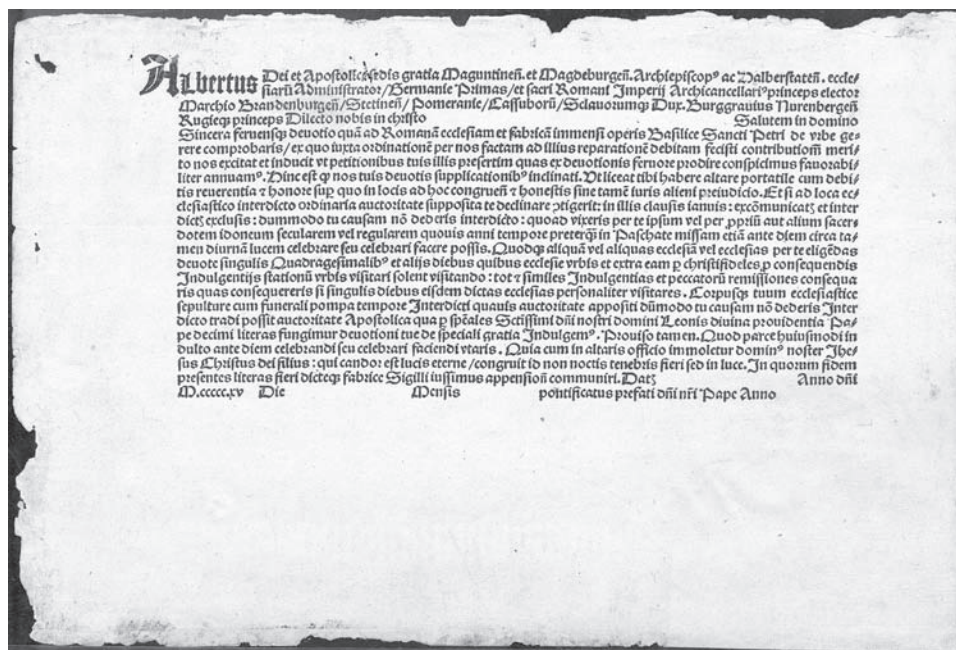 Albertus Dei et Apostolice sedis gratia Maguntineñ. et Magdeburgeñ. Archiepiscopꝰ ac Halberstateñ. eccle⸗
siarū Administrator/Germanie Primas/et sacri Romani Imperij Archicancellariꝰ princeps elector
Marchio Brandenburgeñ/Stetineñ/Pomeranie/Cassuborū/Sclauorumqꝫ Dux. Burggrauius Nurenbergeñ
Rugieqꝫ princeps Dilecto nobis in christo Salutem in domino
Sincera feruensqꝫ deuotio quā ad Romanā ecclesiam et fabricā immensi operis Basilice Sancti Petri de vrbe ge⸗
rere comprobaris/ex quo iuxta ordinationē per nos factam ad illius reparationē debitam fecisti contributioñ meri⸗
to nos excitat et inducit vt petitionibus tuis illis presertim quas ex deuotionis feruore prodire conspicimus fauorabi⸗
liter annuamꝰ. Hinc est ꝙ nos tuis deuotis supplicationibꝰ inclinati. Vt liceat tibi habere altare portatile cum debi⸗
tis reuerentia ⁊ honore suꝑ quo in locis ad hoc congrueñ ⁊ honestis sine tamē iuris alieni preiudicio. Et si ad loca ec⸗
clesiastico interdicto ordinaria auctoritate supposita te declinare ꝯtigerit: in illis clausis ianuis: excōmunicatꝫ et inter
dictꝫ exclusis: dummodo tu causam nō dederis interdicto: quoad vixeris per te ipsum vel per ꝓpriū aut alium sacer⸗
dotem idoneum secularem vel regularem quouis anni tempore preterqꝫ in Paschate missam etiā ante diem circa ta⸗
men diurnā lucem celebrare seu celebrari facere possis. Quodqꝫ aliquā vel aliquas ecclesiā vel ecclesias per te eligēdas
deuote singulis Quadragesimalibꝰ et alijs diebus quibus ecclesie vrbis et extra eam ꝑ christifideles ꝓ consequendis
Indulgentijs stationū vrbis visitari solent visitando: tot ⁊ similes Indulgentias et peccatorū remissiones consequa
ris quas consequereris si singulis diebus eisdem dictas ecclesias personaliter visitares. Corpusqꝫ tuum ecclesiastice
sepulture cum funerali pompa tempore Interdicti quauis auctoritate appositi dūmodo tu causam nō dederis Inter
dicto tradi possit auctoritate Apostolica qua ꝑ spēales Sctissimi dn̄i nostri domini Leonis diuina prouidentia Pa⸗
pe decimi literas fungimur deuotioni tue de speciali gratia Indulgemꝰ. Prouiso tamen. Quod parce huiusmodi in
dulto ante diem celebrandi seu celebrari faciendi vtaris. Quia cum in altaris officio immoletur dominꝰ noster Jhe⸗
sus Christus dei filius: qui candor est lucis eterne/congruit id non noctis tenebris fieri sed in luce. In quorum fidem
presentes literas fieri dicteqꝫ fabrice Sigilli iussimus appensioñ communiri. Datꝫ Anno dn̄i
M.ccccc.xv Die Mensis pontificatus prefati dn̄i nr̄i Pape Anno